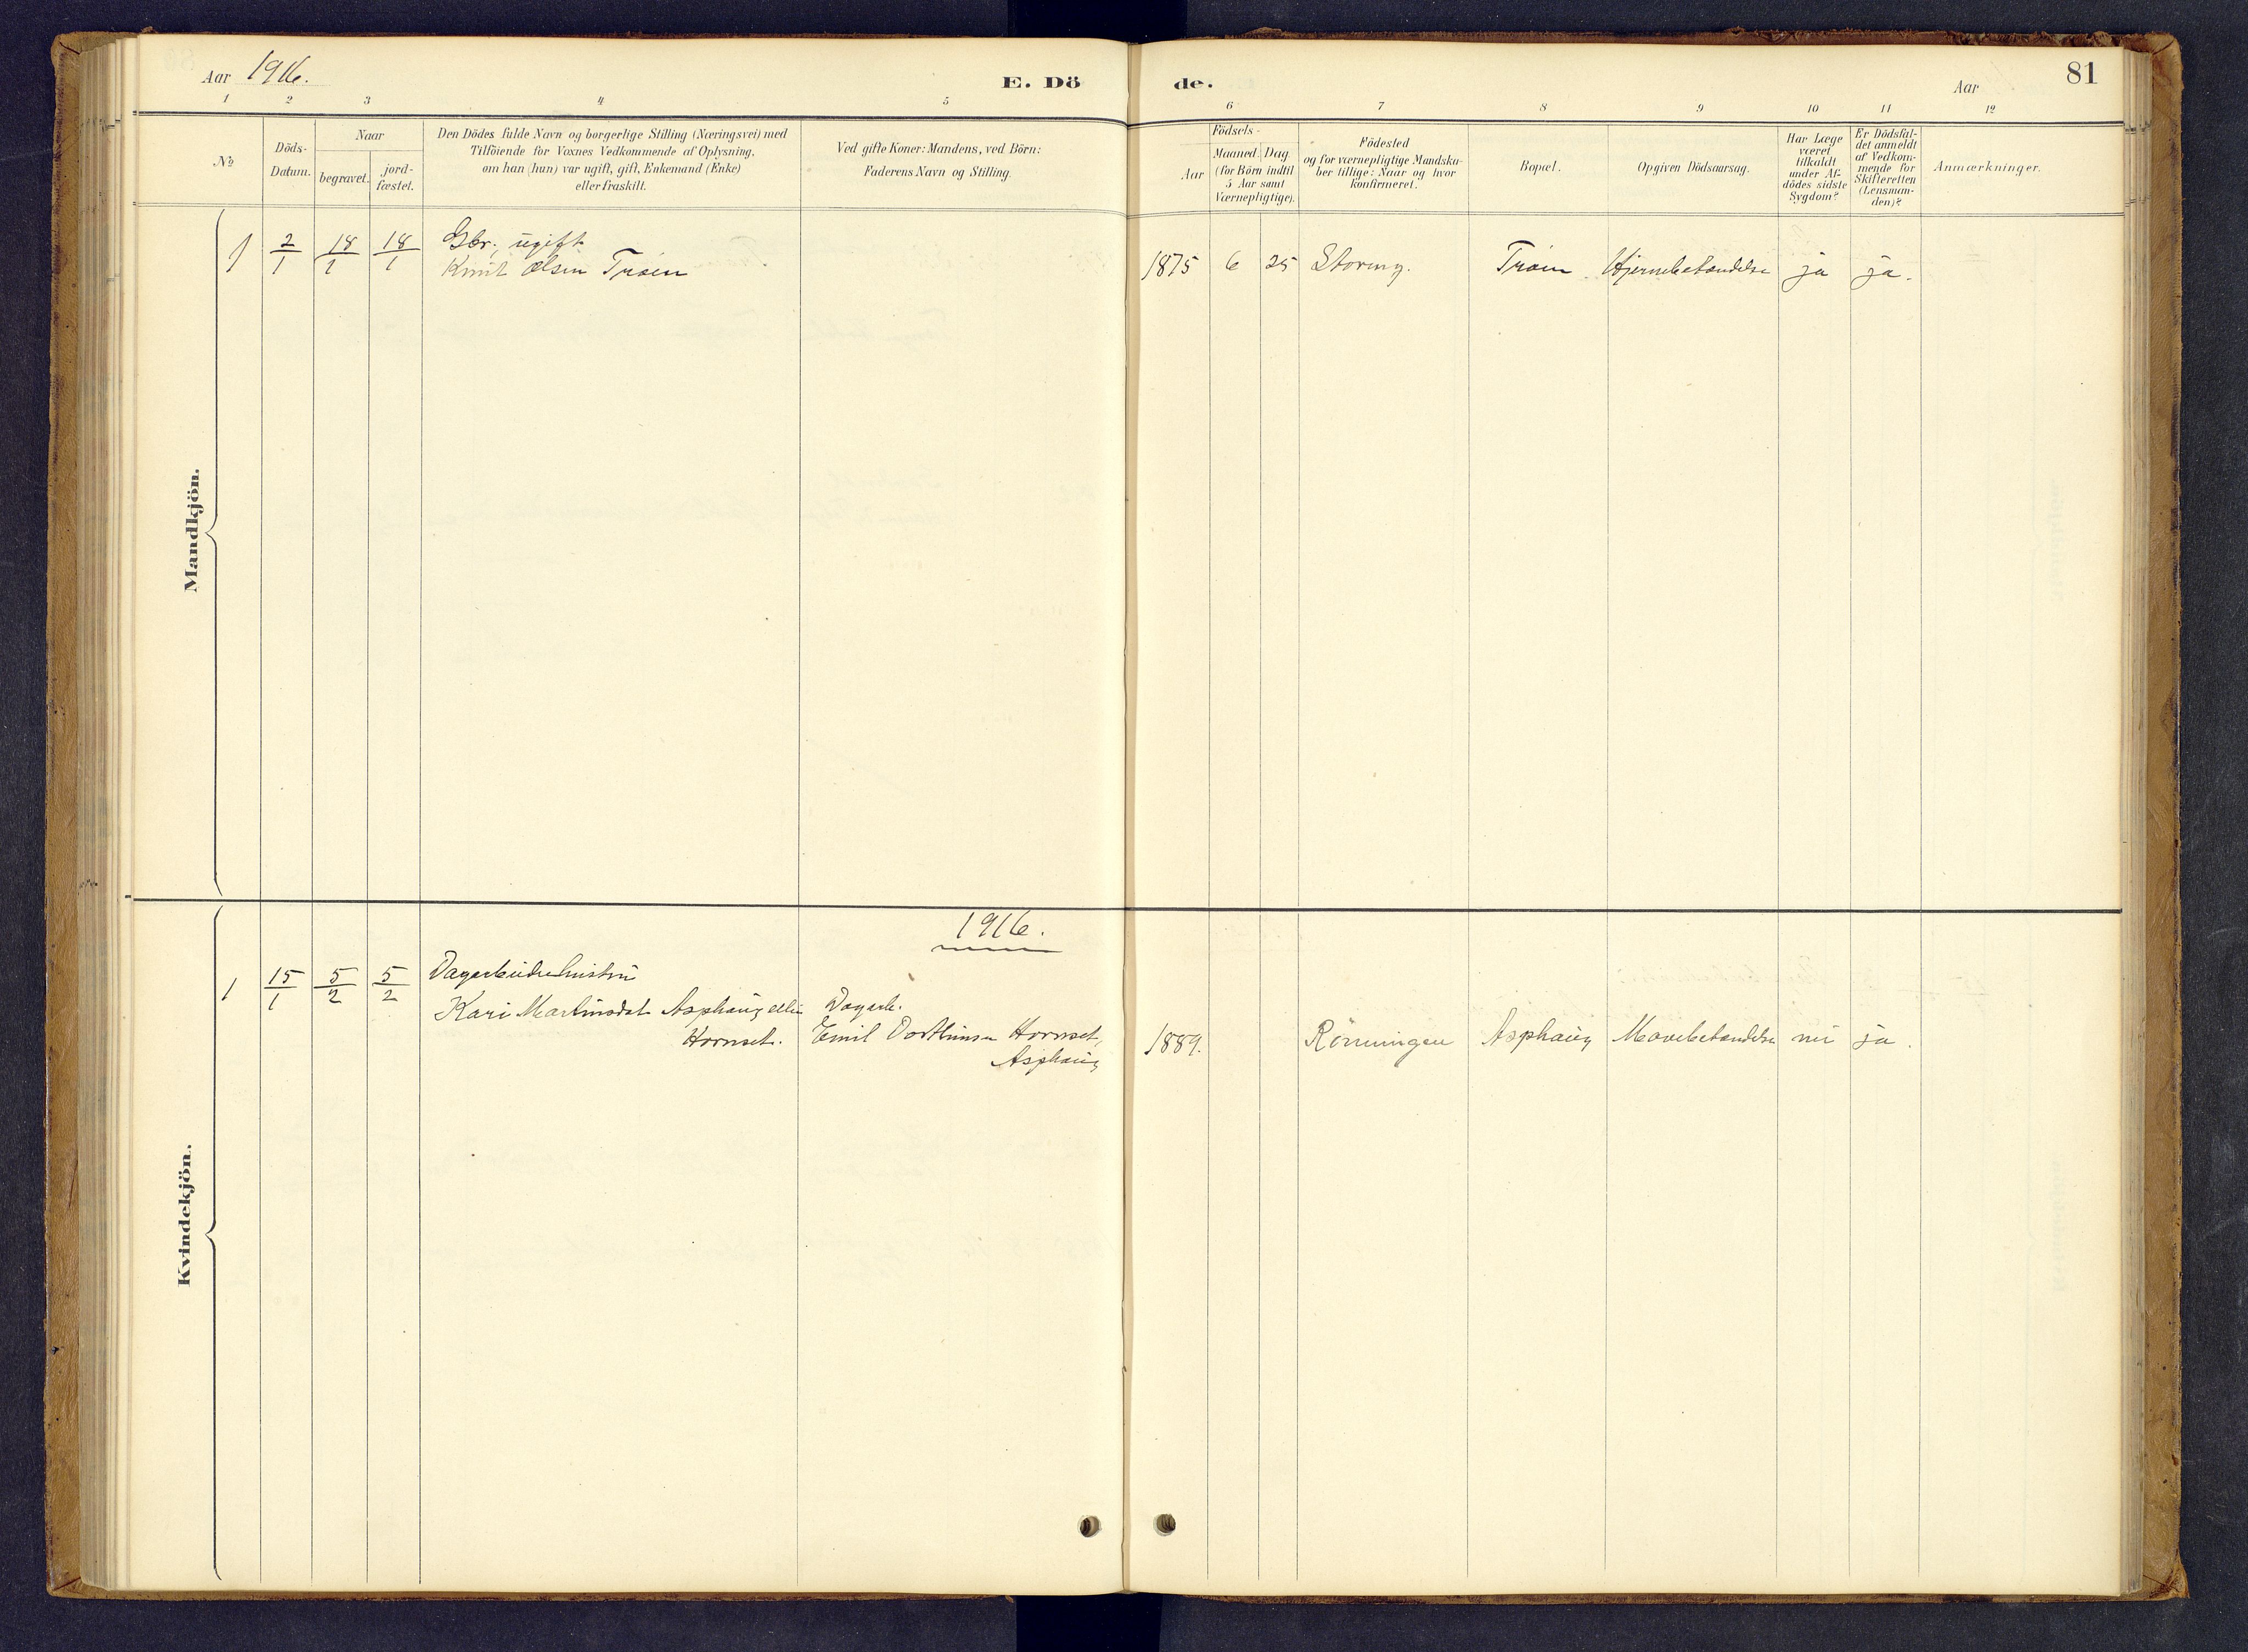 Aar 1916.
E. Dö
de.
Aar
81
1 2 3 4 5
6 7 8 9 10 11 12
No
Döds-
Datum.
Naar
begravet.
jord-
fæstet.
Den Dödes fulde Navn og borgerlige Stilling (Næringsvei) med
Tilföiende for Voxnes Vedkommende af Oplysning,
om han (hun) var ugift, gift, Enkemand (Enke)
eller fraskilt.
Ved gifte Koner: Mandens, ved Börn:
Faderens Navn og Stilling.
Födsels-
Aar
Maaned. Dag
(for Börn indtil
5 Aar samt
Værnepligtige).
Födested
og for værnepligtige Mandska-
ber tillige: Naar og hvor
konfirmeret.
Bopæl.
Opgiven Dödsaarsag.
Har Læge
været
tilkaldt
under Af-
dödes sidste
Sygdom?
Er Dödsfal-
det anmeldt
af Vedkom-
mende for
Skifteretten
(Lensman-
den)?
Anmærkninger.
Mandkjön.
1 2/1 18/1 18/1 Gbr., ugift
Knut Olsen Trøen
1875 6 25 Storeng. Trøen Hjernebetændelse ja ja.
Kvindekjön.
1916.
1 15/1 5/2 5/2 Dagarbeiderhustru
Kari Martinsdat Asphaug eller
Hornset.
Dagarb.
Emil Hornset,
Asphaug
1889. Rönningen Asphaug Mavebetændelse nei ja.